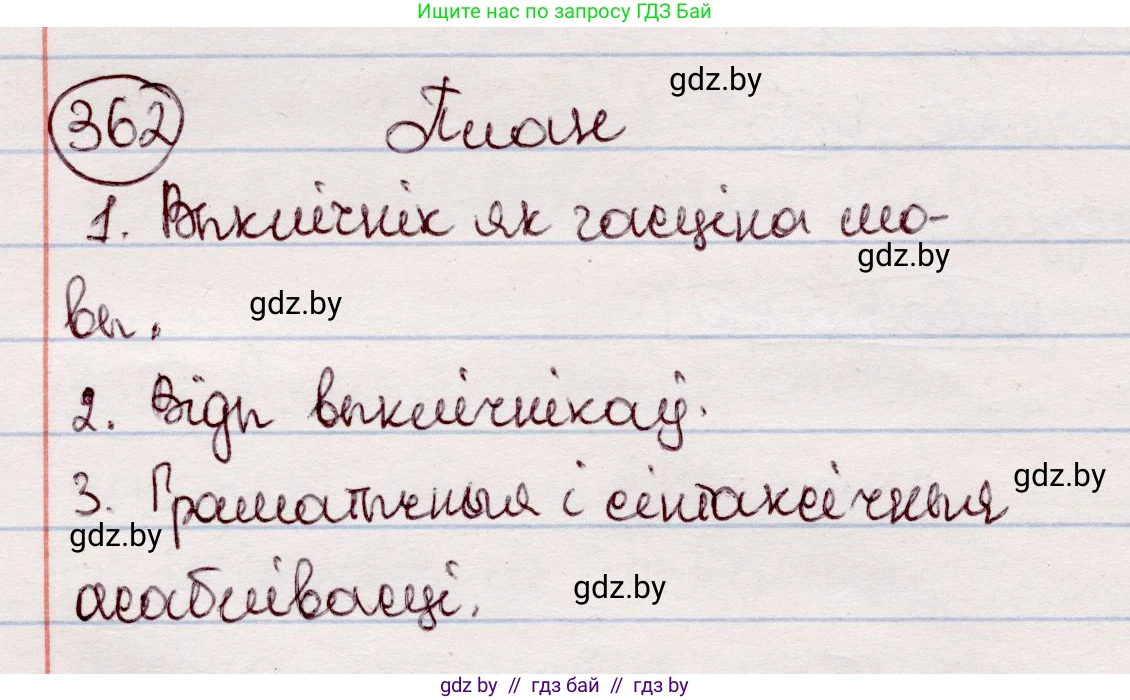 Ищите нас по запросу ГДЗ Бай
gdz.by
362 План
1. Выклічнік як часціна мо-
gdz.by
вы. gdz.by
2. Віды выклічнікаў.
3. Граматычныя і сінтаксічныя gdz.by
gdz.by
асаблівасці. gdz.by
gdz by // гдз бай // gdz by